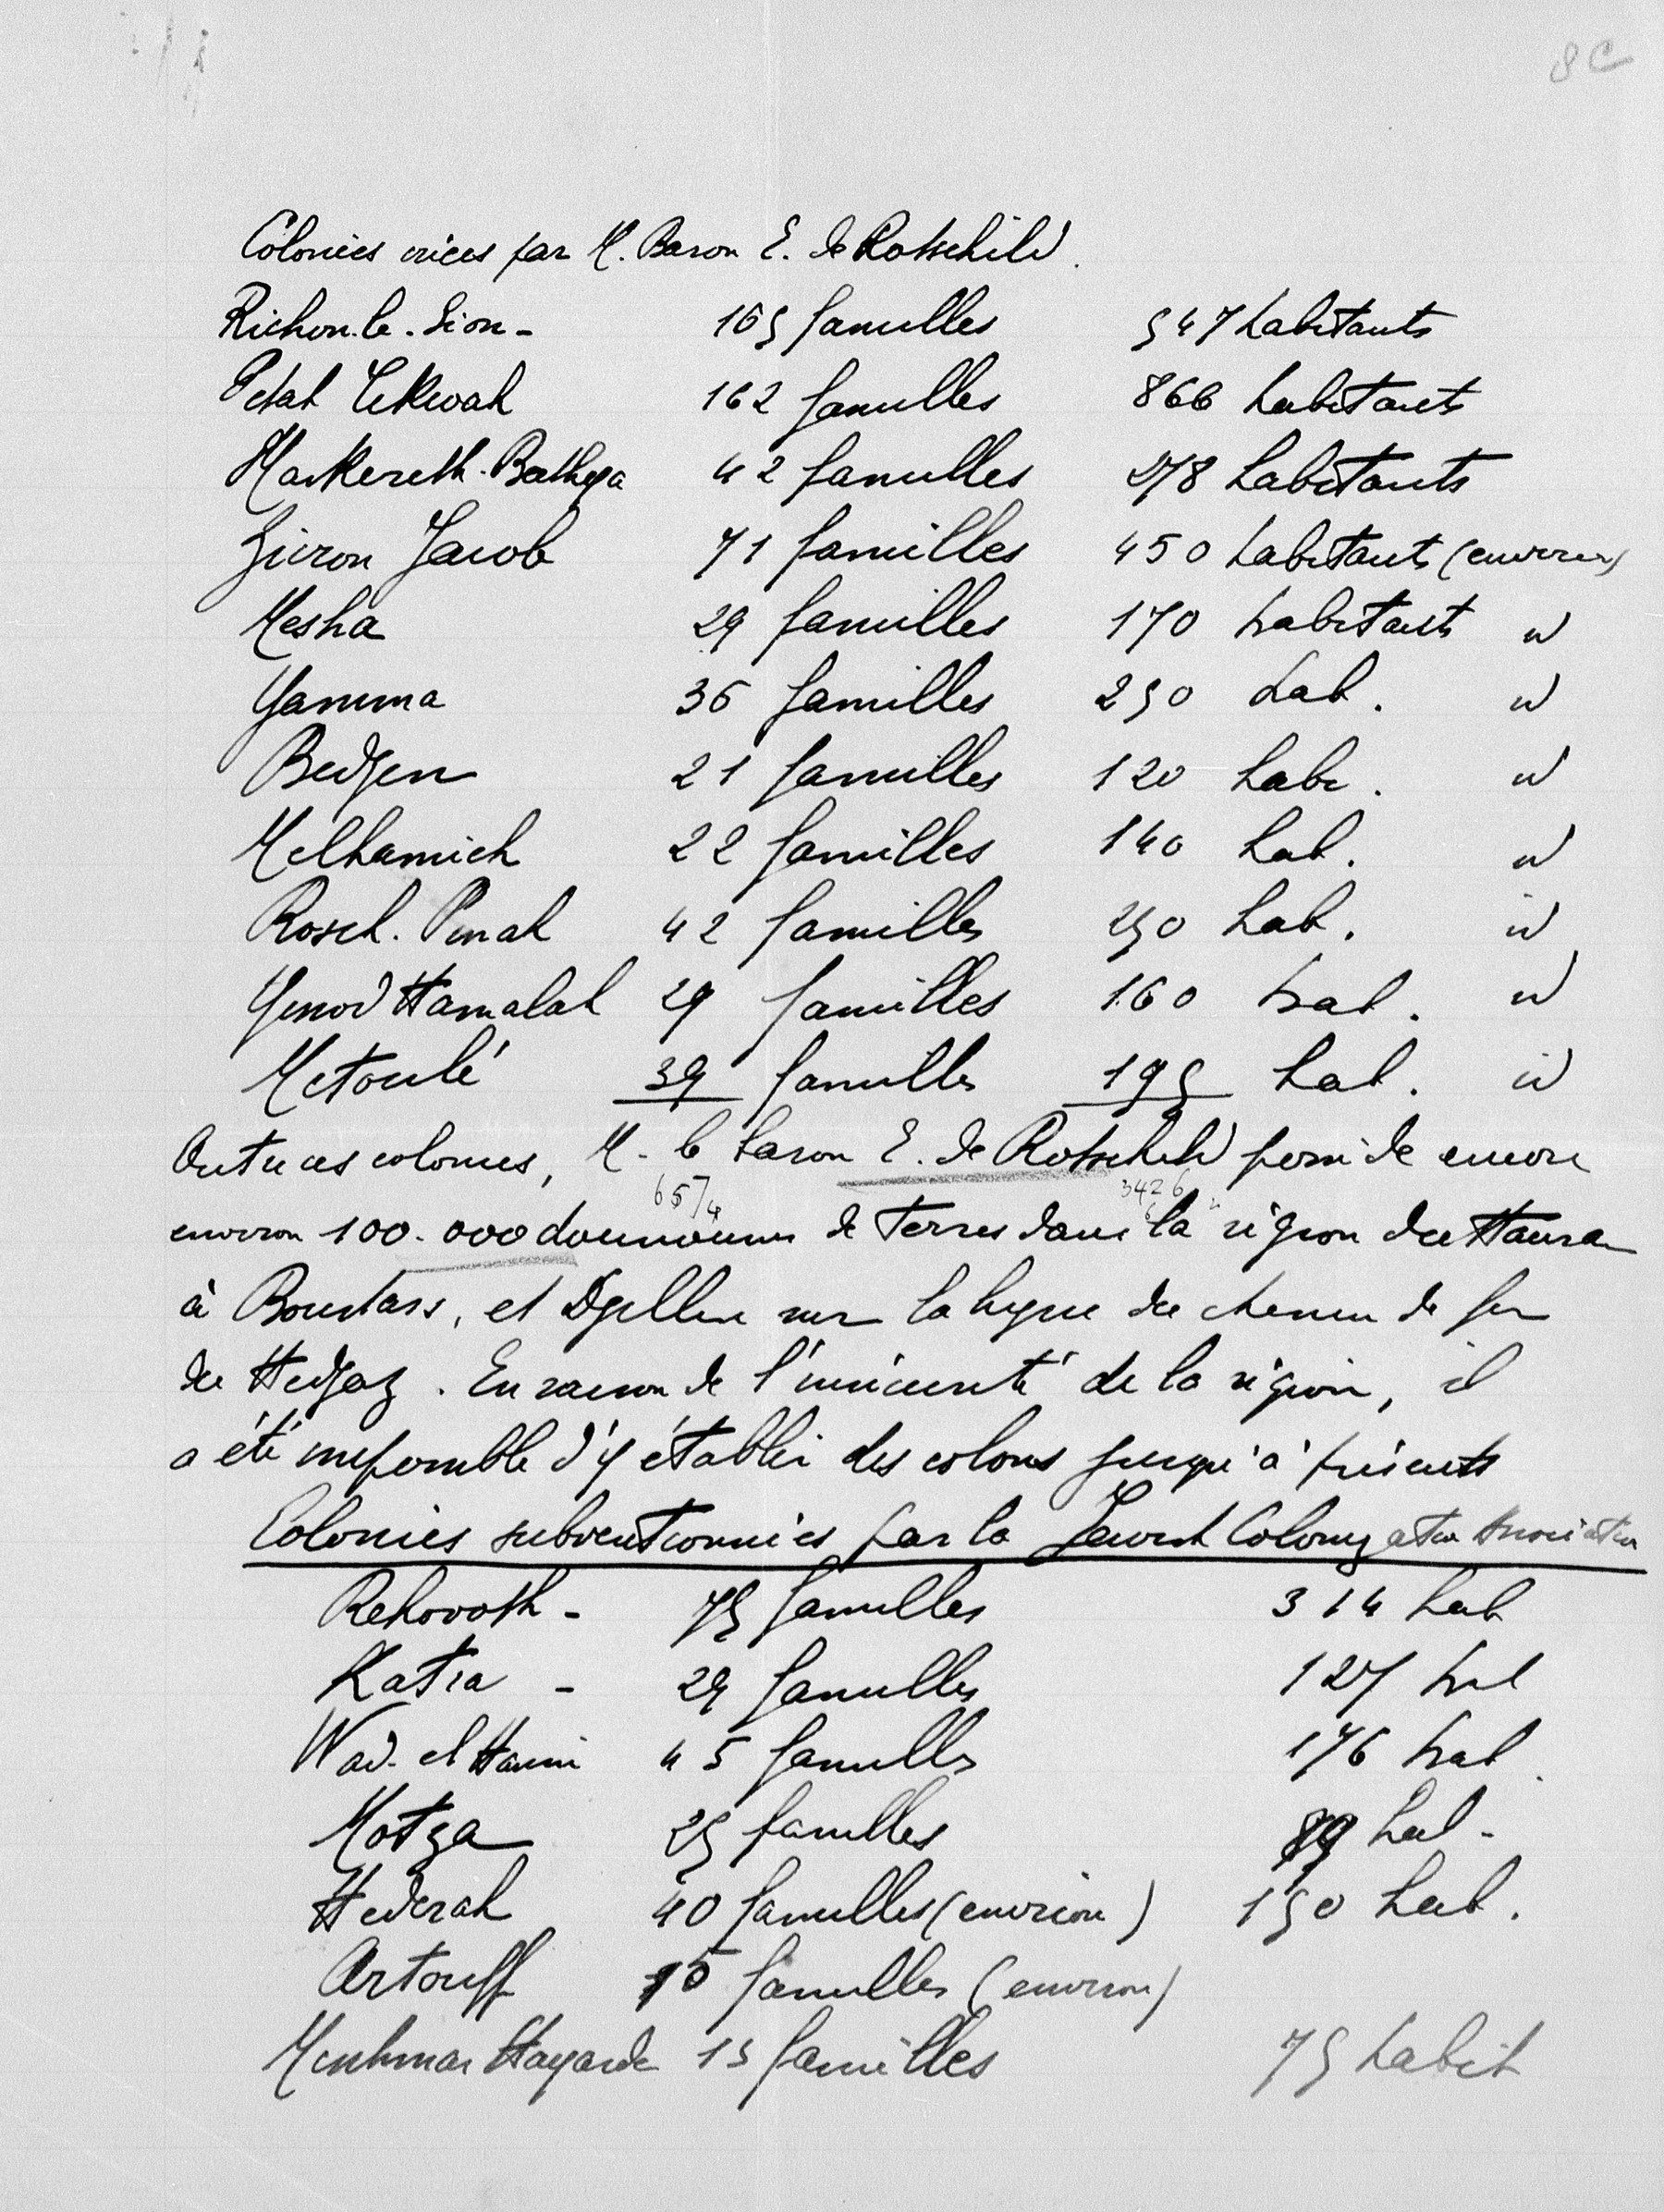 8c
Colonies créées par M. Baron E. de Rotschild.
Richon-le-Sion - 165 familles 547 habitants
Petah Tekwah 162 familles 866 habitants
Maskereth-Bathya 42 familles 278 habitants
Zicron Jacob 71 familles 450 habitants (environ)
Mesha 29 familles 170 habitants id
Yamma 36 familles 250 hab. id
Bedjen 21 familles 120 hab. id
Melhamieh 22 familles 140 hab. id
Rosch. Pinah 42 familles 250 hab. id
Yessod Hamalah 29 familles 160 hab. id
Metoulé 39 familles 195 hab. id
Outre ces colonies, M. le Baron E. de Rotschild possède encore
657 3426
environ 100.000 dounoums de terres dans la région du Hauran
à Boustass, et Djellene sur la ligne du chemin de fer
du Hedjaz. En raison de l'insécurité de la région, il
a été impossible d'y établir des colons jusqu'à présents
Colonies subventionnées par la Jewish Colonization Association
Rehovoth - 75 familles 314 hab
Katra - 29 familles 127 hab
Wad-el Hanin 45 familles 176 hab.
Motza 25 familles 89 hab-
Hederah 40 familles (environ) 150 hab.
Artouff 15 familles (environ)
Mishmar Hayarde 15 familles 75 habit